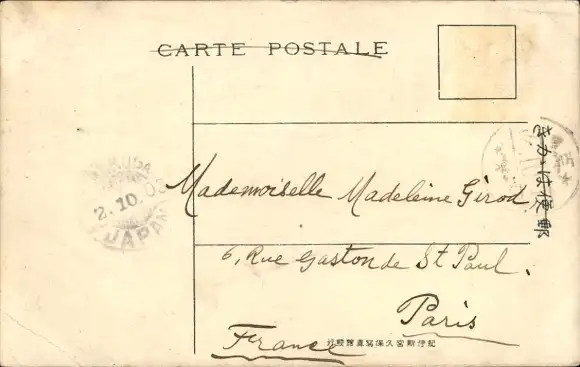 CARTE POSTALE
郵便はかき
2.10.03
JAPAN
Mademoiselle Madeleine Girod
6, Rue Gaston de St Paul.
Paris
France